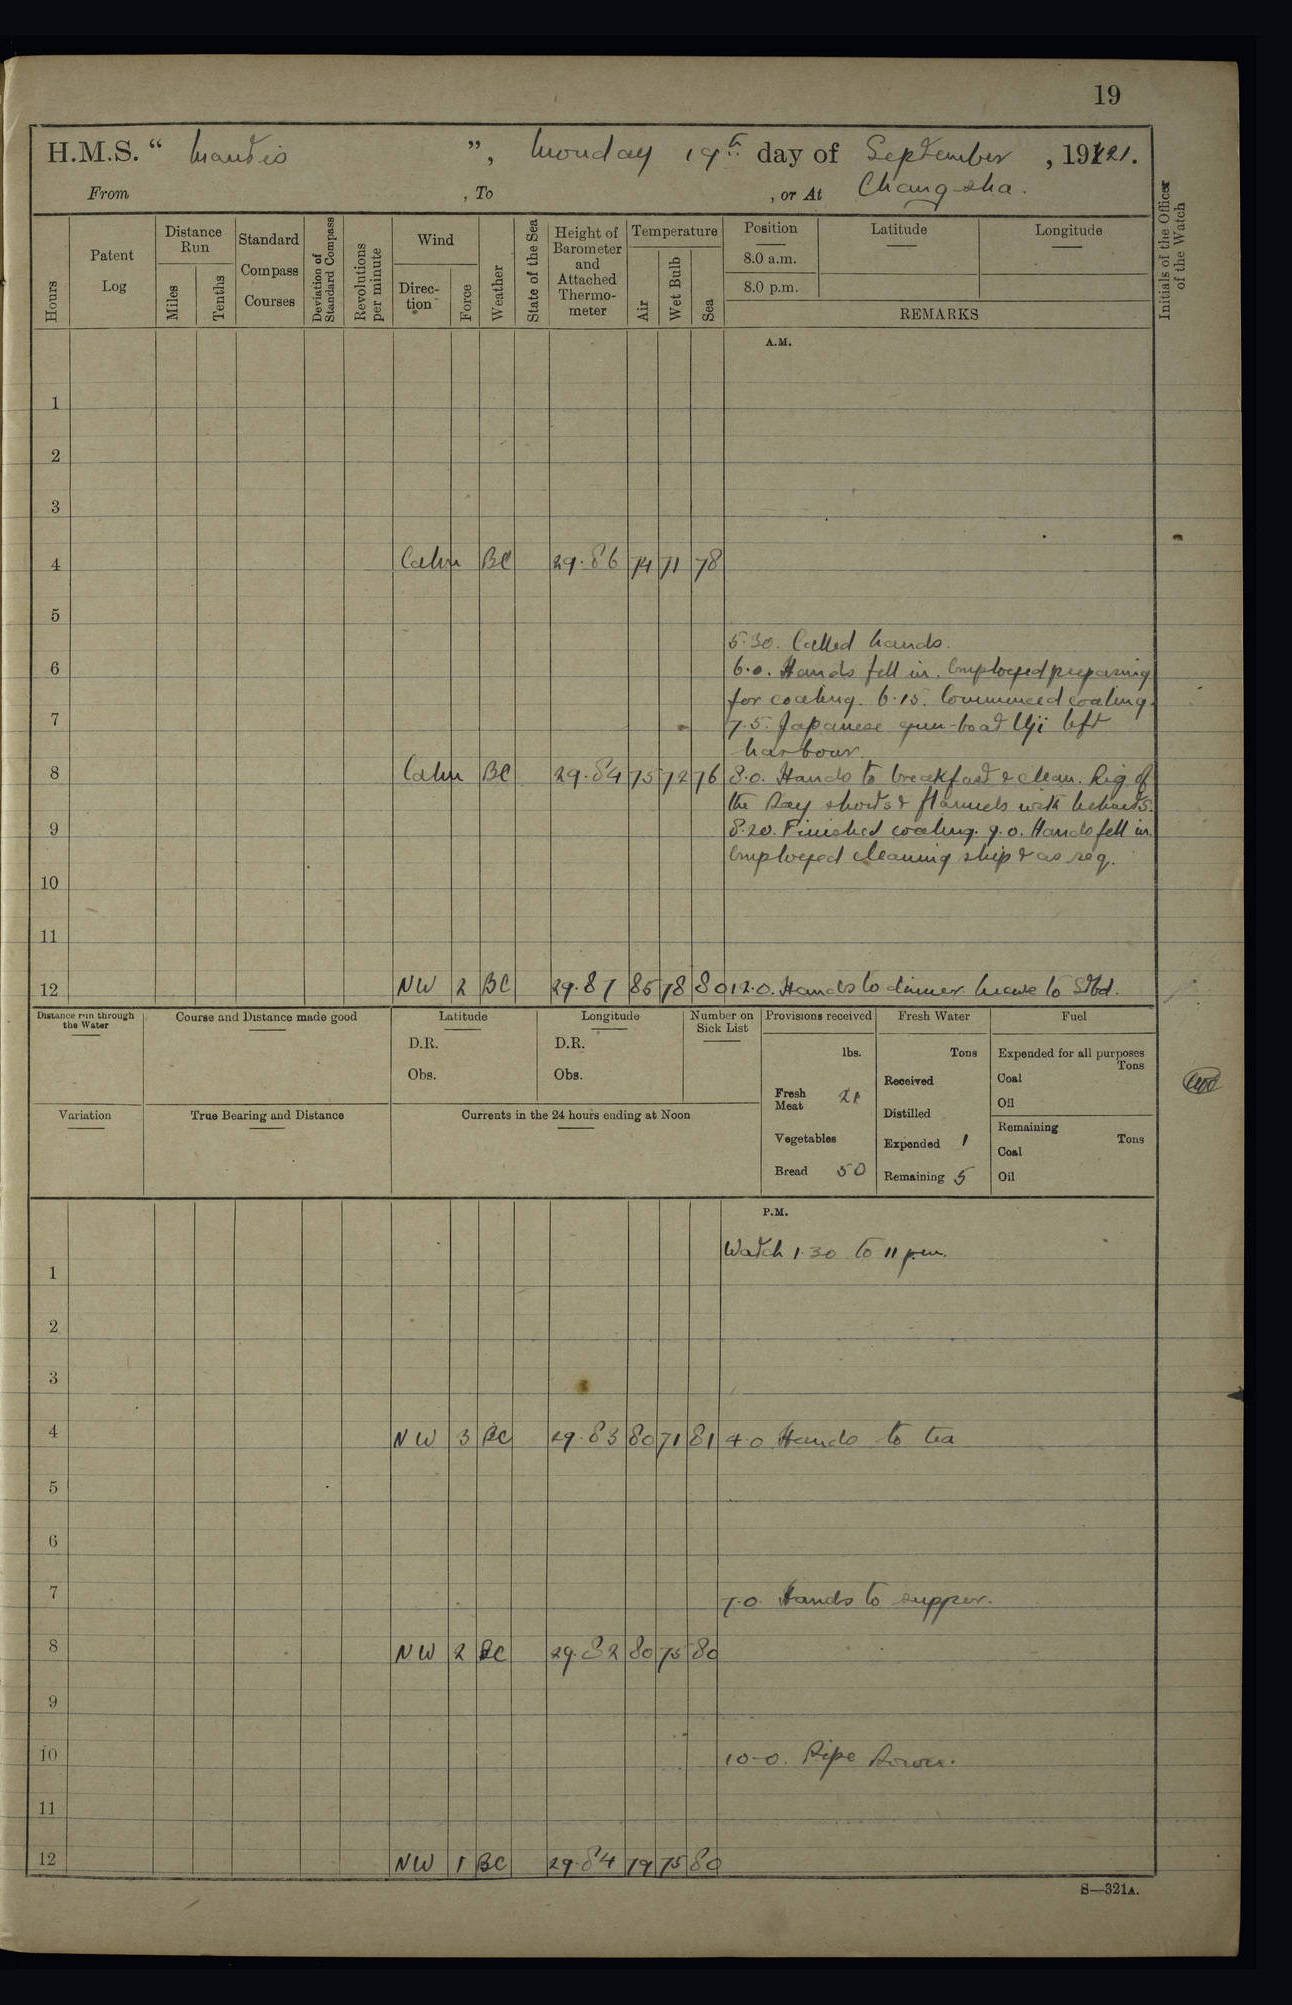 19
H.M.S. “ Mantis ”, Monday 19th day of September , 1921.
From , To , or At Changsha.
Hours
Patent Log
Distance Run
Miles
Tenths
Standard Compass Courses
Deviation of Standard Compass
Revolutions per minute
Wind
Direction
Force
Weather
State of the Sea
Height of Barometer and Attached Thermometer
Temperature
Air
Wet Bulb
Sea
Position
8.0 a.m.
8.0 p.m.
Latitude
Longitude
REMARKS
Initials of the Officer of the Watch
A.M.
1
2
3
4 Calm BC 29.86 74 71 78
5
5.30. Called hands.
6 6.0. Hands fell in. Employed preparing
for coaling. 6.15. Commenced coaling.
7 7.5. Japanese gun-boat Uji left
harbour.
8 Calm BC 29.84 75 72 76 8.0. Hands to breakfast & clean. Rig of
the Day shorts & flannels with helmets.
9 8.20. Finished coaling. 9.0. Hands fell in.
Employed cleaning ship & as req.
10
11
12 NW 2 BC 29.87 85 78 80 12.0. Hands to dinner. Leave to Stbd.
Distance run through the Water
Course and Distance made good
Latitude
D.R.
Obs.
Longitude
D.R.
Obs.
Number on Sick List
Provisions received
lbs.
Fresh Meat 21
Vegetables
Bread 50
Fresh Water
Tons
Received
Distilled
Expended 1
Remaining 5
Fuel
Expended for all purposes
Tons
Coal
Oil
Remaining
Tons
Coal
Oil
Variation
True Bearing and Distance
Currents in the 24 hours ending at Noon
P.M.
Watch 1.30 to 11 p.m.
1
2
3
4 NW 3 BC 29.83 80 71 81 4.0 Hands to tea
5
6
7 7.0. Hands to supper.
8 NW 2 BC 29.82 80 75 80
9
10 10-0. Pipe Down.
11
12 NW 1 BC 29.84 79 75 80
S—321A.